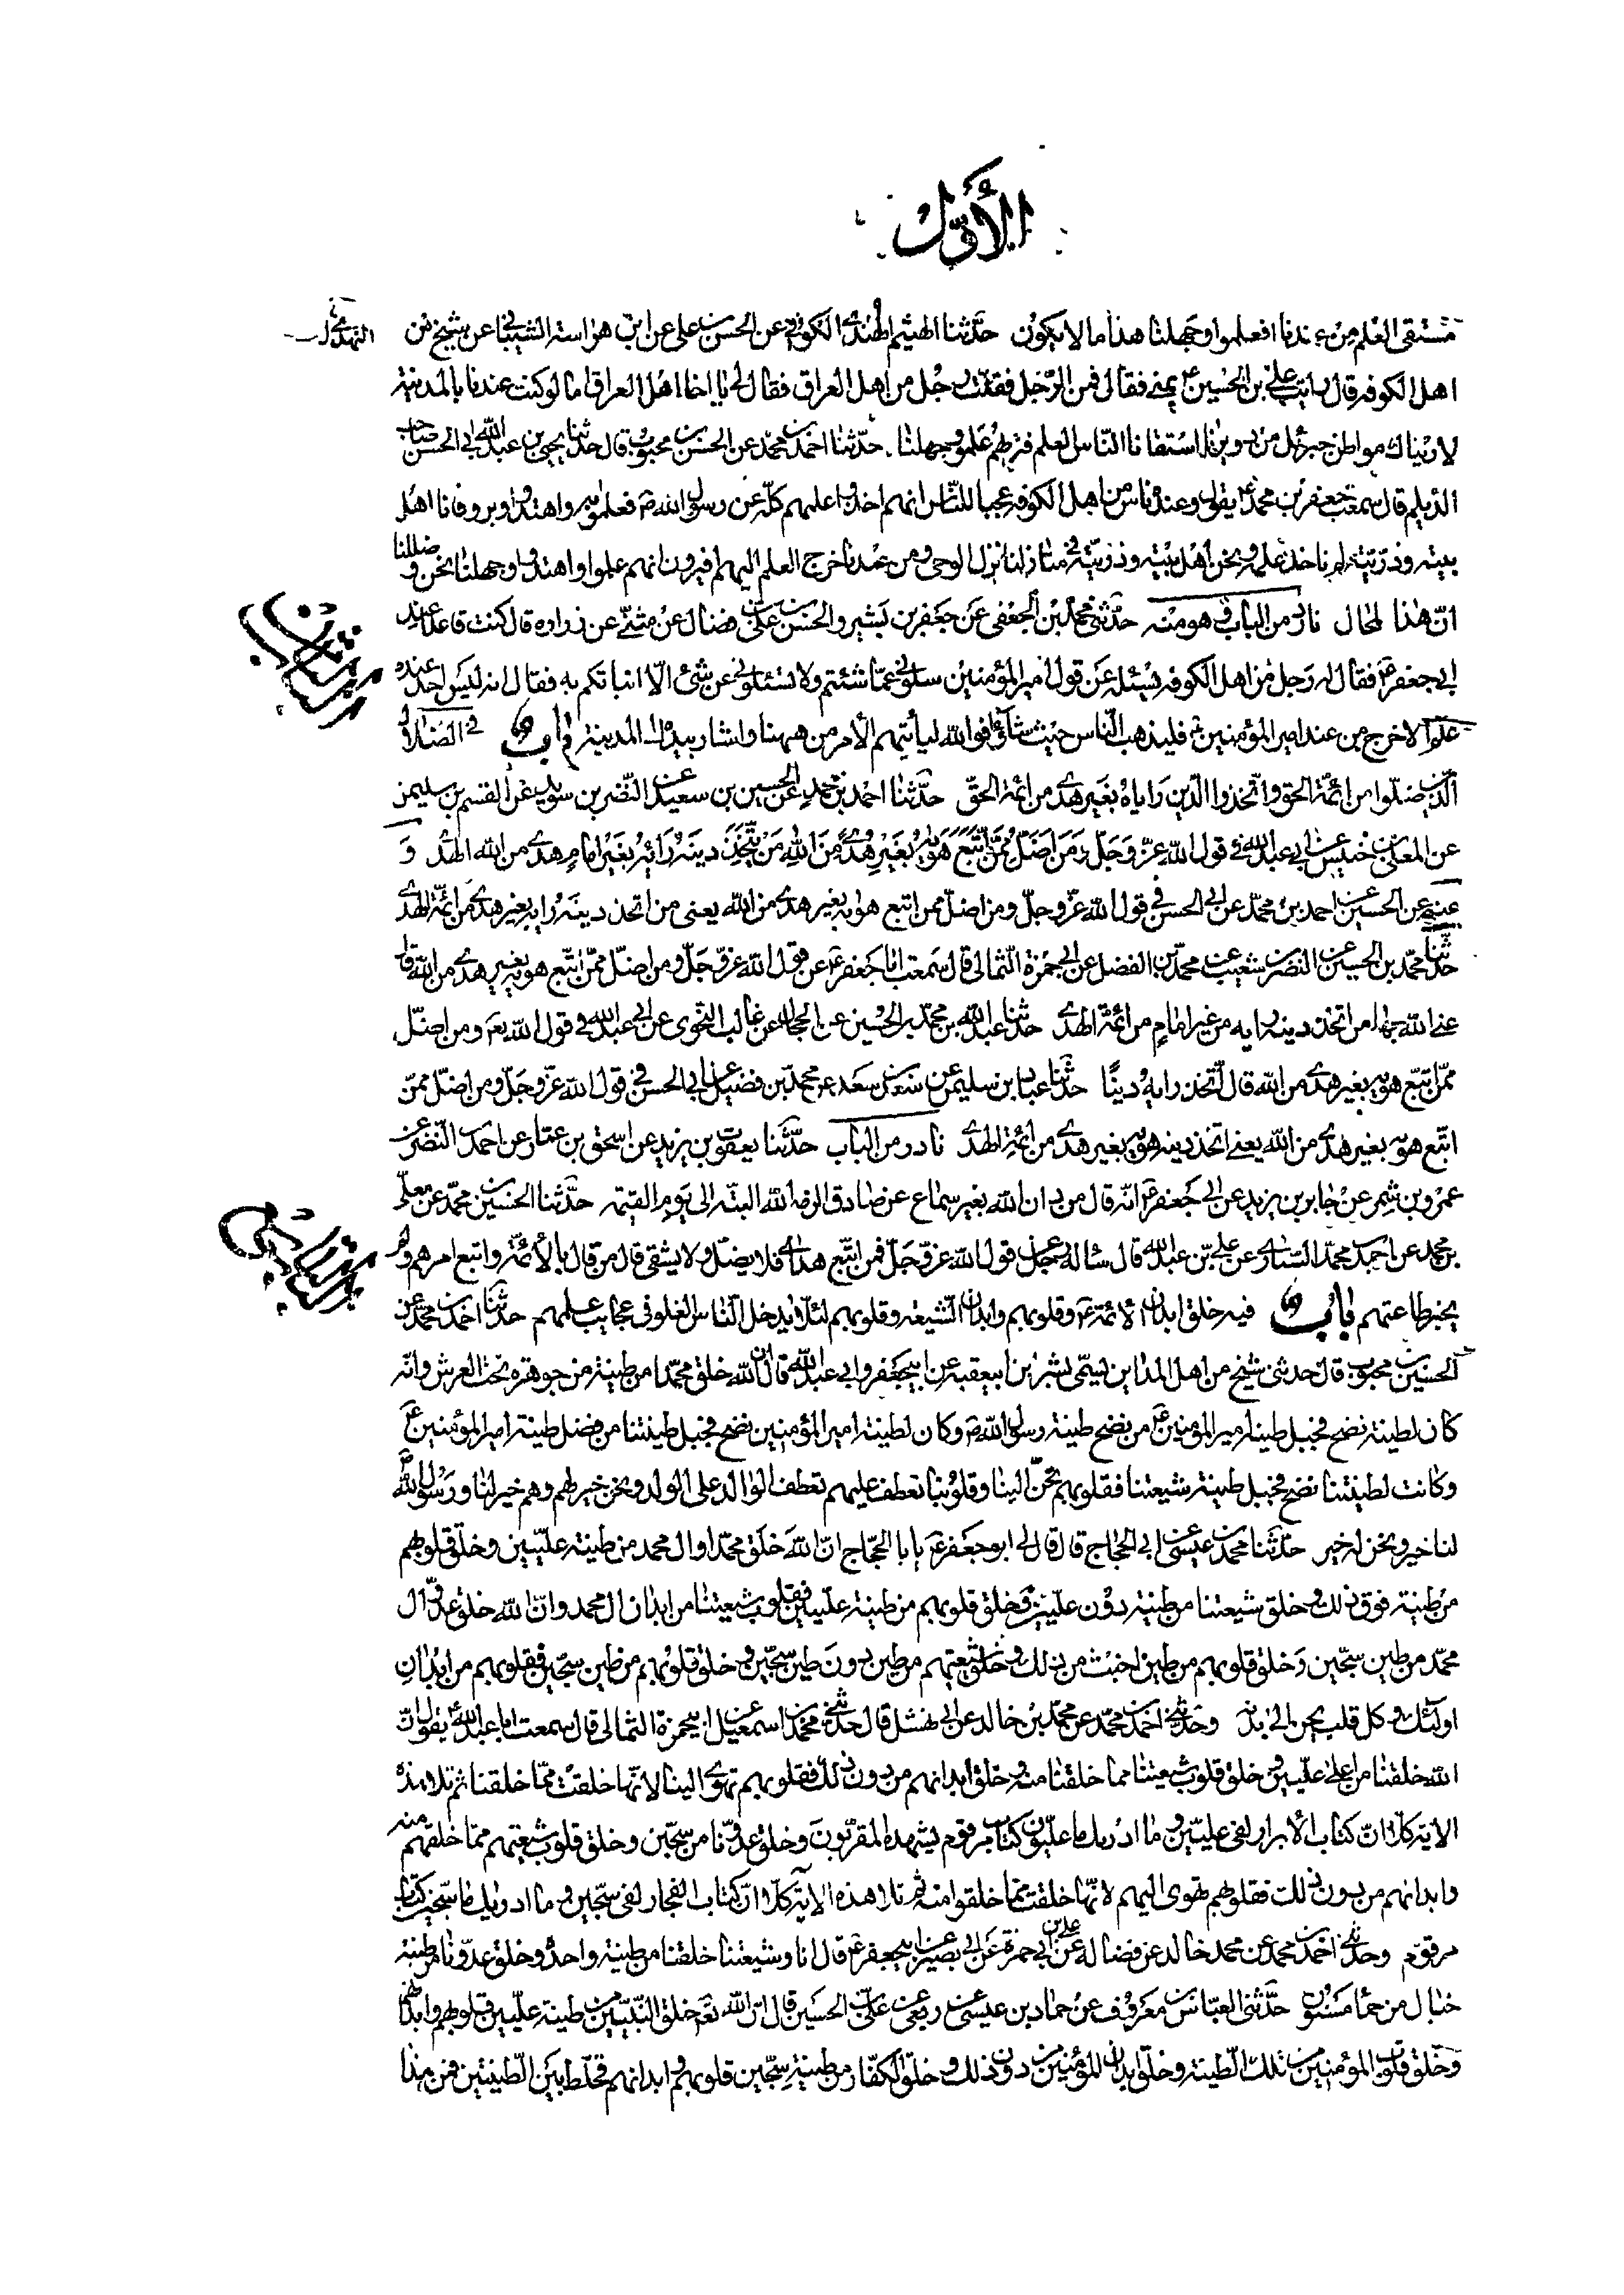 الأوّل
مستقى العلم من عندنا افعلموا وجهلنا هذا ما لا يكون حدّثنا الهيثم النهدى الكوفى عن الحسن بن على عن ابن هراسة الشيبانى عن شيخ من
اهل الكوفه قال رايت على بن الحسين ع بمنى فقال لى ممن الرّجل فقلت رجل من اهل العراق فقال لى يا اخا اهل العراق اما لو كنت عندنا بالمدينة
لاريناك مواطن جبرئيل من دويرنا استقانا النّاس العلم فتريهم علموا وجهلنا حدّثنا احمد بن محمّد عن الحسن بن محبوب قال حدّثنا يحيى بن عبد اللّه ابى الحسن صاحب
الديلم قال سمعت جعفر بن محمّد ع يقول وعنده ناس من اهل الكوفه عجبا للنّاس انهم اخذوا علمهم كلّه عن رسول اللّه ص فعلموا به واهتدوا ويروون انا اهل
بيته وذرّيّته لم ناخذ علمه ونحن اهل بيته وذرّيّته فى منازلنا نزل الوحى ومن عندنا خرج العلم اليهم افيرون انهم علموا واهتدوا وجهلنا نحن وضللنا
انّ هذا لمحال نادر من الباب وهو منه حدّثنى محمّد بن الجعفى عن جعفر بن بشير والحسن بن علىّ بن فضال عن مثنّى عن زراره قال كنت قاعدا عند
ابى جعفر ع فقال له رجل من اهل الكوفه يسئله عن قول امير المؤمنين سلونى عمّا شئتم ولا تسئلونى عن شئ الّا انباتكم به فقال انه ليس احد عنده
علم الا خرج من عند امير المؤمنين ع فليذهب النّاس حيث شاؤا فو اللّه ليأتيهم الأمر من ههنا واشار بيده الى المدينة باب فى الضلال
الّذين ضلّوا من ائمّة الحق واتّخذوا الدّين رايا بغير هدى من ائمّة الحقّ حدّثنا احمد بن محمّد عن الحسين بن سعيد عن النّضر بن سويد عن القسم بن سليمن
عن المعلّى بن خنيس عن ابى عبد اللّه فى قول اللّه عزّ وجلّ ومن اضلّ ممّن اتّبع هويه بغير هدى من اللّه من يتّخذ دينه رائه بغير امام هدى من اللّه الهدى و
عنه عن الحسين عن احمد بن محمّد عن ابى الحسن فى قول اللّه عزّ وجلّ ومن اضلّ ممن اتبع هويه بغير هدى من اللّه يعنى من اتخذ دينه رايه بغير هدى من ائمّة الهدى
حدّثنا محمّد بن الحسين عن النضر بن شعيب عن محمّد بن الفضل عن ابى حمزة الثّمالى قال سمعت ابا جعفر ع عن قول اللّه عزّ وجلّ ومن اضلّ ممّن اتّبع هويه بغير هدى من اللّه قال
عنى اللّه بها من اتخذ دينه رايه من غير امام من ائمة الهدى حدّثنا عبد اللّه بن محمّد بن الحسين عن الحجال عن غالب النحوى عن ابى عبد اللّه فى قول اللّه تع ومن اضلّ
ممّن اتّبع هويه بغير هدى من اللّه قال اتّخذ رايه دينًا حدّثنا عباد بن سليمن عن سعد بن سعد عن محمّد بن فضيل عن ابى الحسن فى قول اللّه عزّ وجلّ ومن اضلّ ممّن
اتّبع هويه بغير هدى من اللّه يعنى اتخذ دينه هويه بغير هدى من ائمّة الهدى نادر من الباب حدّثنا يعقوب بن يزيد عن اسحق بن عمار عن احمد بن النّضر عن
عمرو بن شمر عن جابر بن يزيد عن ابى جعفر ع انّه قال من دان اللّه بغير سماع عن صادق الزمه اللّه البتّه الى يوم القيمة حدّثنا الحسين بن محمّد عن معلّى
بن محمد عن احمد بن محمّد السّيّارى عن علىّ بن عبد اللّه قال ساله رجل عن قول اللّه عزّ وجلّ فمن اتّبع هداى فلا يضلّ ولا يشقى قال من قال بالأئمّة واتبع امرهم ولم
يجز طاعتهم باب فيه خلق ابدان الائمة ع وقلوبهم وابدان الشيعة وقلوبهم لئلّا يدخل النّاس الغلو فى عجايب علمهم حدّثنا احمد بن محمّد عن
الحسين بن محبوب قال حدثنى شيخ من اهل المداين يسمّى بشر بن ابى عقبه عن ابى جعفر وابى عبد اللّه قال انّ اللّه خلق محمّدا من طينة من جوهرة تحت العرش وانّه
كان لطينته نضح فجبل طينة امير المؤمنين ع من نضح طينة رسول اللّه ص وكان لطينة امير المؤمنين نضح فجبل طينتنا من فضل طينة امير المؤمنين ع
وكانت لطينتنا نضح فجبل طينة شيعتنا فقلوبهم تحنّ الينا وقلوبنا تعطف عليهم تعطف الوالد على الولد ونحن خير لهم وهم خير لنا ورسول اللّه
لنا خير ونحن له خير حدّثنا محمد بن عيسى عن ابى الحجاج قال قال لى ابو جعفر ع يا با الحجّاج انّ اللّه خلق محمّدا وال محمد من طينة علّيّين وخلق قلوبهم
من طينة فوق ذلك وخلق شيعتنا من طينة دون علّيّين وخلق قلوبهم من طينة علّيّين فقلوب شيعتنا من ابدان ال محمد وانّ اللّه خلق عدوّ ال
محمّد من طين سجّين وخلق قلوبهم من طين اخبث من ذلك وخلق شيعتهم من طين دون طين سجّين وخلق قلوبهم من طين سجّين فقلوبهم من ابدان
اولئك وكل قلب يحنّ الى بدنه وحدّثنى احمد بن محمّد عن محمّد بن خالد عن ابى نهشل قال حدّثنى محمّد بن اسمعيل عن ابى حمزة الثمالى قال سمعت ابا عبد اللّه ع يقول انّ
اللّه خلقنا من اعلى علّيّين وخلق قلوب شيعتنا مما خلقنا منه وخلق ابدانهم من دون ذلك فقلوبهم تهوى الينا لانّها خلقت ممّا خلقنا ثم تلا هذه
الاية كلّا انّ كتاب الأبرار لفى علّيّين وما ادريك ما علّيّون كتاب مرقوم يشهده المقرّبون وخلق عدوّنا من سجّين وخلق قلوب شيعتهم ممّا خلقهم منه
وابدانهم من دون ذلك فقلوبهم تهوى اليهم لانّها خلقت ممّا خلقوا منه ثم تلا هذه الاية كلّا انّ كتاب الفجار لفى سجّين وما ادريك ما سجّين كتاب
مرقوم وحدّثنى احمد بن محمد عن محمد خالد عن فضاله عن على بن ابى حمزة عن ابى بصير عن ابى جعفر ع قال انا وشيعتنا خلقنا من طينة واحدة وخلق عدوّنا من طينة
خبال من حمأ مسنون حدّثنى العبّاس بن معروف عن حماد بن عيسى عن ربعى عن علىّ بن الحسين قال انّ اللّه تع خلق النبيّين من طينة علّيّين قلوبهم وابدانهم
وخلق قلوب المؤمنين من تلك الطينة وخلق ابدان المؤمنين من دون ذلك وخلق الكفّار من طينة سجّين قلوبهم وابدانهم فخلط بين الطينتين فمن هذا